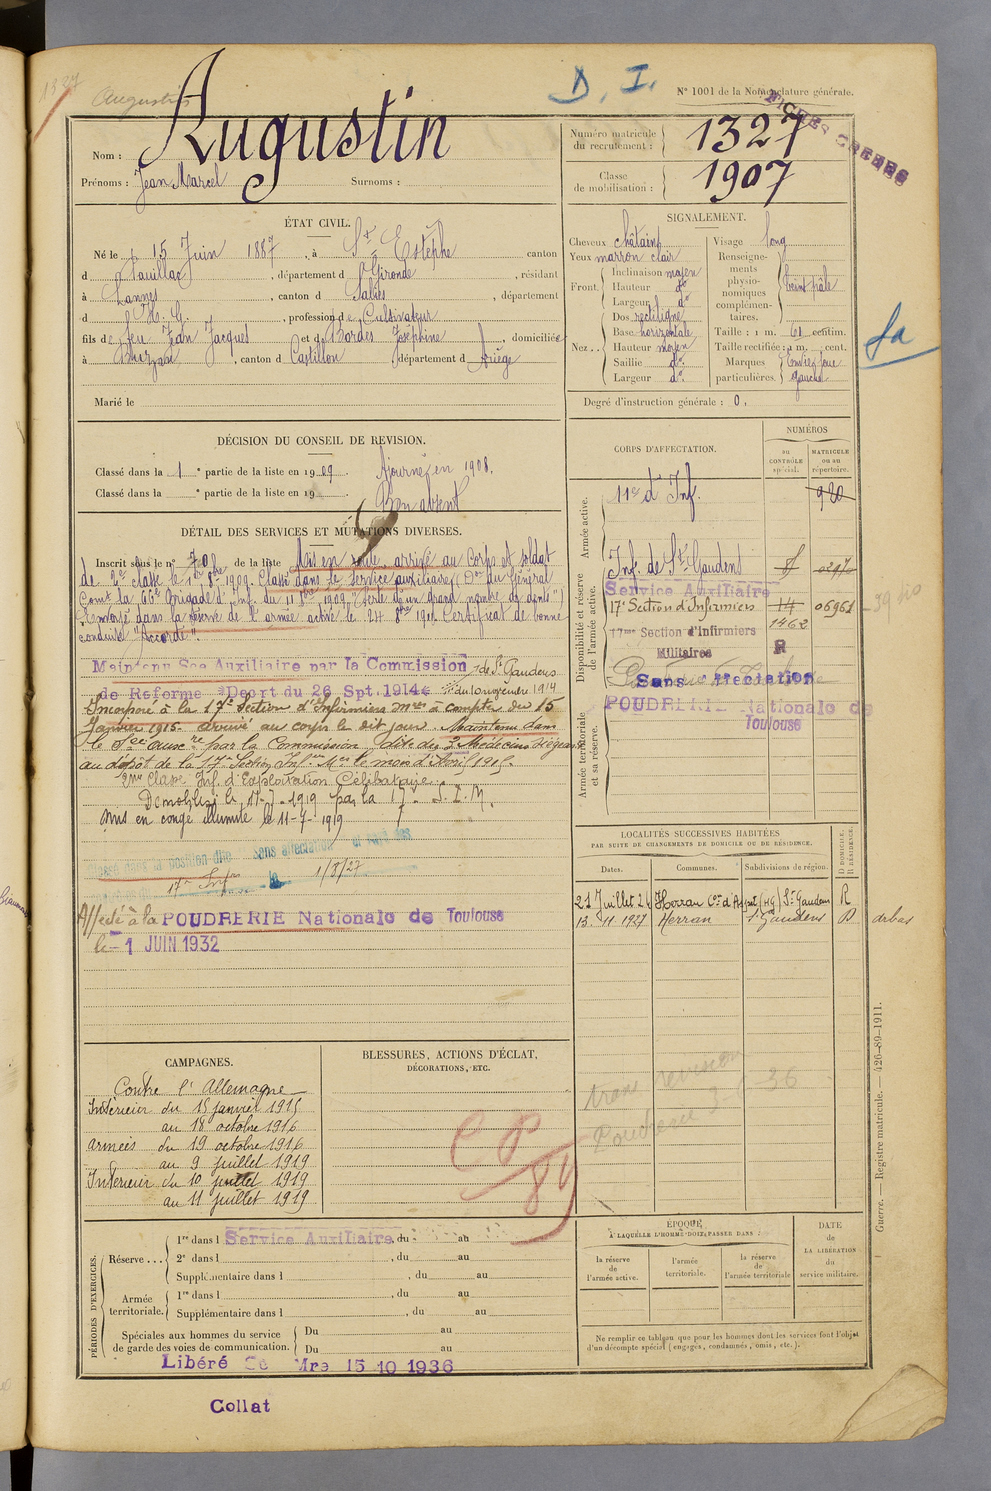 1327
Augustin
D. I.
N° 1001 de la Nomenclature générale.
FICHES CREEES
Nom : Augustin
Prénoms : Jean Marcel Surnoms :
Numéro matricule du recrutement : 1327
Classe de mobilisation : 1907
ÉTAT CIVIL.
Né le 15 Juin 1887, à St Estèphe canton
d Pauillac, département d Gironde, résidant
à Lannes, canton d Salies, département
d H. G., profession de Cultivateur
fils de feu Jean Jacques et de Bordes Joséphine, domiciliés
à Buzan, canton d Castillon département d Ariège
Marié le
SIGNALEMENT.
Cheveux châtains
Yeux marron clair
Front. Inclinaison moyen
Hauteur do
Largeur do
Nez.. Dos rectiligne
Base horizontale
Hauteur moyen
Saillie do
Largeur do
Visage long
Renseignements physionomiques complémentaires. teint pâle
Taille : 1 m. 61 centim.
Taille rectifiée : 1 m. cent.
Marques particulières. joue gauche
Degré d'instruction générale : 0.
DÉCISION DU CONSEIL DE REVISION.
Classé dans la 1e partie de la liste en 1909. Ajourné en 1908.
Classé dans la e partie de la liste en 19 Bon absent
DÉTAIL DES SERVICES ET MUTATIONS DIVERSES.
Inscrit sous le n° de la liste Mis en route, arrivé au Corps et soldat
de 2e classe le 1909. Classé dans le service auxiliaire (Don du Général
Comt la 66e Brigade d'Inf. du 11 1909 "Perte d'un grand nombre de dents")
Renvoyé dans la réserve de l'armée active le 24 Certificat de bonne
conduite "Accordé".
Maintenu Sce Auxiliaire par la Commission de St Gaudens
de Reforme Decrt du 26 Spt. 1914 du 10 novembre 1914
Incorporé à la 17e Section d'Infirmiers mres à compter du 15
Janvier 1915. arrivé au corps le dit jour. Maintenu dans
le Sce auxre par la Commission, dite des 3 Médecins siégeant
au dépôt de la 17e Section Infres Mres le mois d'Avril 1915.
2me Classe. Inf. d'Exploitation. Célibataire.
Démobilisé le 11-7-1919 par la 17e S. I. M.
Mis en congé illimité le 11-7-1919
Classé dans la position dite Sans affectation
17e le 1/8/27
Affecté à la POUDRERIE Nationale de Toulouse
le 1 JUIN 1932
CORPS D'AFFECTATION.
NUMÉROS
au CONTRÔLE spécial.
MATRICULE ou au répertoire.
Armée active.
11e d'Inf. 920
Disponibilité et réserve de l'armée active.
Inf. de St Gaudens
Service Auxiliaire
17e Section d'Infirmiers 14 06961
1462
17me Section d'Infirmiers Militaires R
Sans affectation
POUDRERIE Nationale de Toulouse
Armée territoriale et sa réserve.
LOCALITÉS SUCCESSIVES HABITÉES
PAR SUITE DE CHANGEMENTS DE DOMICILE OU DE RÉSIDENCE.
Dates. Communes. Subdivisions de région. D DOMICILE. R RÉSIDENCE.
21 Juillet 24 Herran Con d'Aspet (HG) St Gaudens R
13. 11 1927 Herran St Gaudens D arbas
CAMPAGNES.
Contre l'Allemagne
Intérieur du 15 janvier 1915
au 18 octobre 1916
armées du 19 octobre 1916
au 9 juillet 1919
Intérieur du 10 juillet 1919
au 11 juillet 1919
BLESSURES, ACTIONS D'ÉCLAT,
DÉCORATIONS, ETC.
CP
PÉRIODES D'EXERCICES.
Réserve ... 1re dans l Service Auxiliaire, du au
2e dans l , du au
Supplémentaire dans l , du au
Armée territoriale. 1re dans l , du au
Supplémentaire dans l , du au
Spéciales aux hommes du service de garde des voies de communication. Du au
Du au
Libéré Mre 15 10 1936
Collat
ÉPOQUE
À LAQUELLE L'HOMME DOIT PASSER DANS :
la réserve de l'armée active.
l'armée territoriale.
la réserve de l'armée territoriale
DATE de LA LIBÉRATION du service militaire.
Ne remplir ce tableau que pour les hommes dont les services font l'objet
d'un décompte spécial (engagés, condamnés, omis, etc.).
Guerre. — Registre matricule. — 426-89-1911.